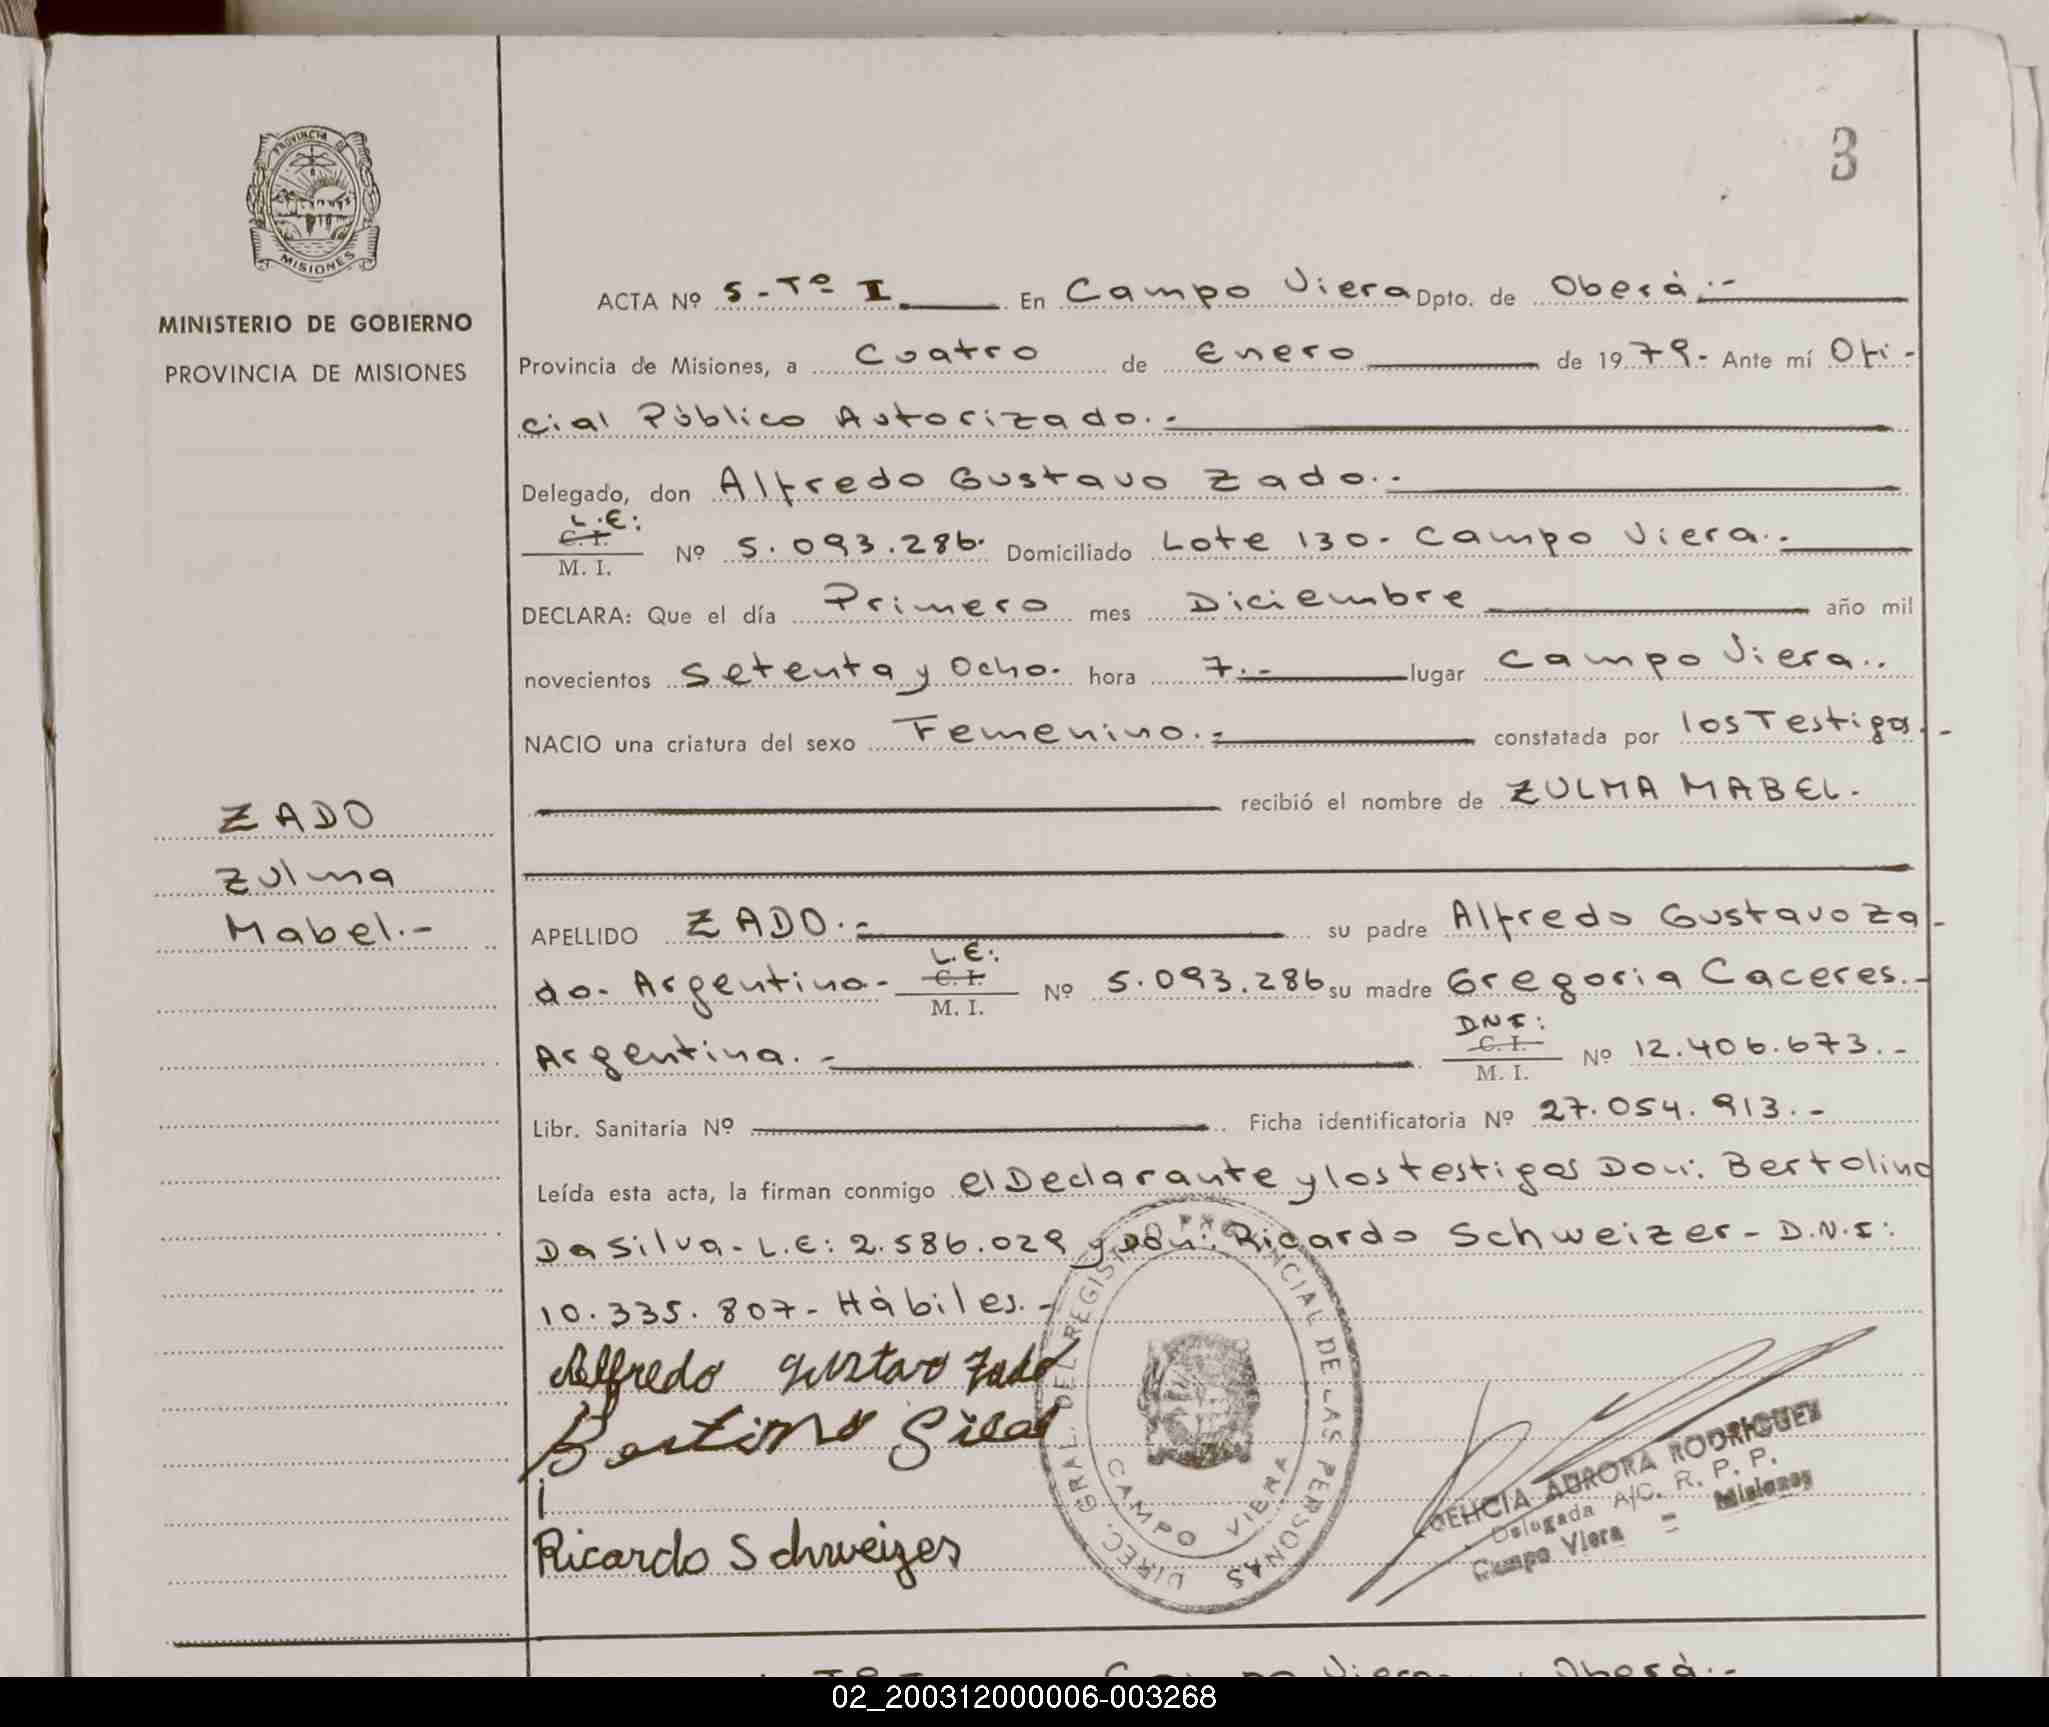 3
PROVINCIA DE
MISIONES
MINISTERIO DE GOBIERNO
PROVINCIA DE MISIONES
ZADO
Zulma
Mabel.-
ACTA Nº 5-Tº I. En Campo Viera Dpto. de Oberá.-
Provincia de Misiones, a Cuatro de Enero de 1979.- Ante mí Ofi-
cial Público Autorizado.-
Delegado, don Alfredo Gustavo Zado.-
L.E:
C. I.
M. I. Nº 5.093.286. Domiciliado Lote 130. Campo Viera.-
DECLARA: Que el día Primero mes Diciembre año mil
novecientos Setenta y Ocho. hora 7.- lugar Campo Viera..
NACIO una criatura del sexo Femenino.- constatada por los Testigos.-
recibió el nombre de ZULMA MABEL.
APELLIDO ZADO.- su padre Alfredo Gustavo Za-
do. Argentino- L.E: C. I. M. I. Nº 5.093.286 su madre Gregoria Caceres.-
Argentina.- DNI: C. I. M. I. Nº 12.406.673.-
Libr. Sanitaria Nº Ficha identificatoria Nº 27.054.913.-
Leída esta acta, la firman conmigo el Declarante y los testigos Don: Bertolino
Da Silva- L.E: 2.586.029 y Don: Ricardo Schweizer- D.N.I:
10.335.807- Hábiles.-
Alfredo Gustavo Zado
Ricardo Schweizer
DIREC. GRAL. DEL REGISTRO PROVINCIAL DE LAS PERSONAS
CAMPO VIERA
AURORA RODRIGUEZ
Delegada A/C. R. P. P.
Campo Viera = Misiones
02_200312000006-003268